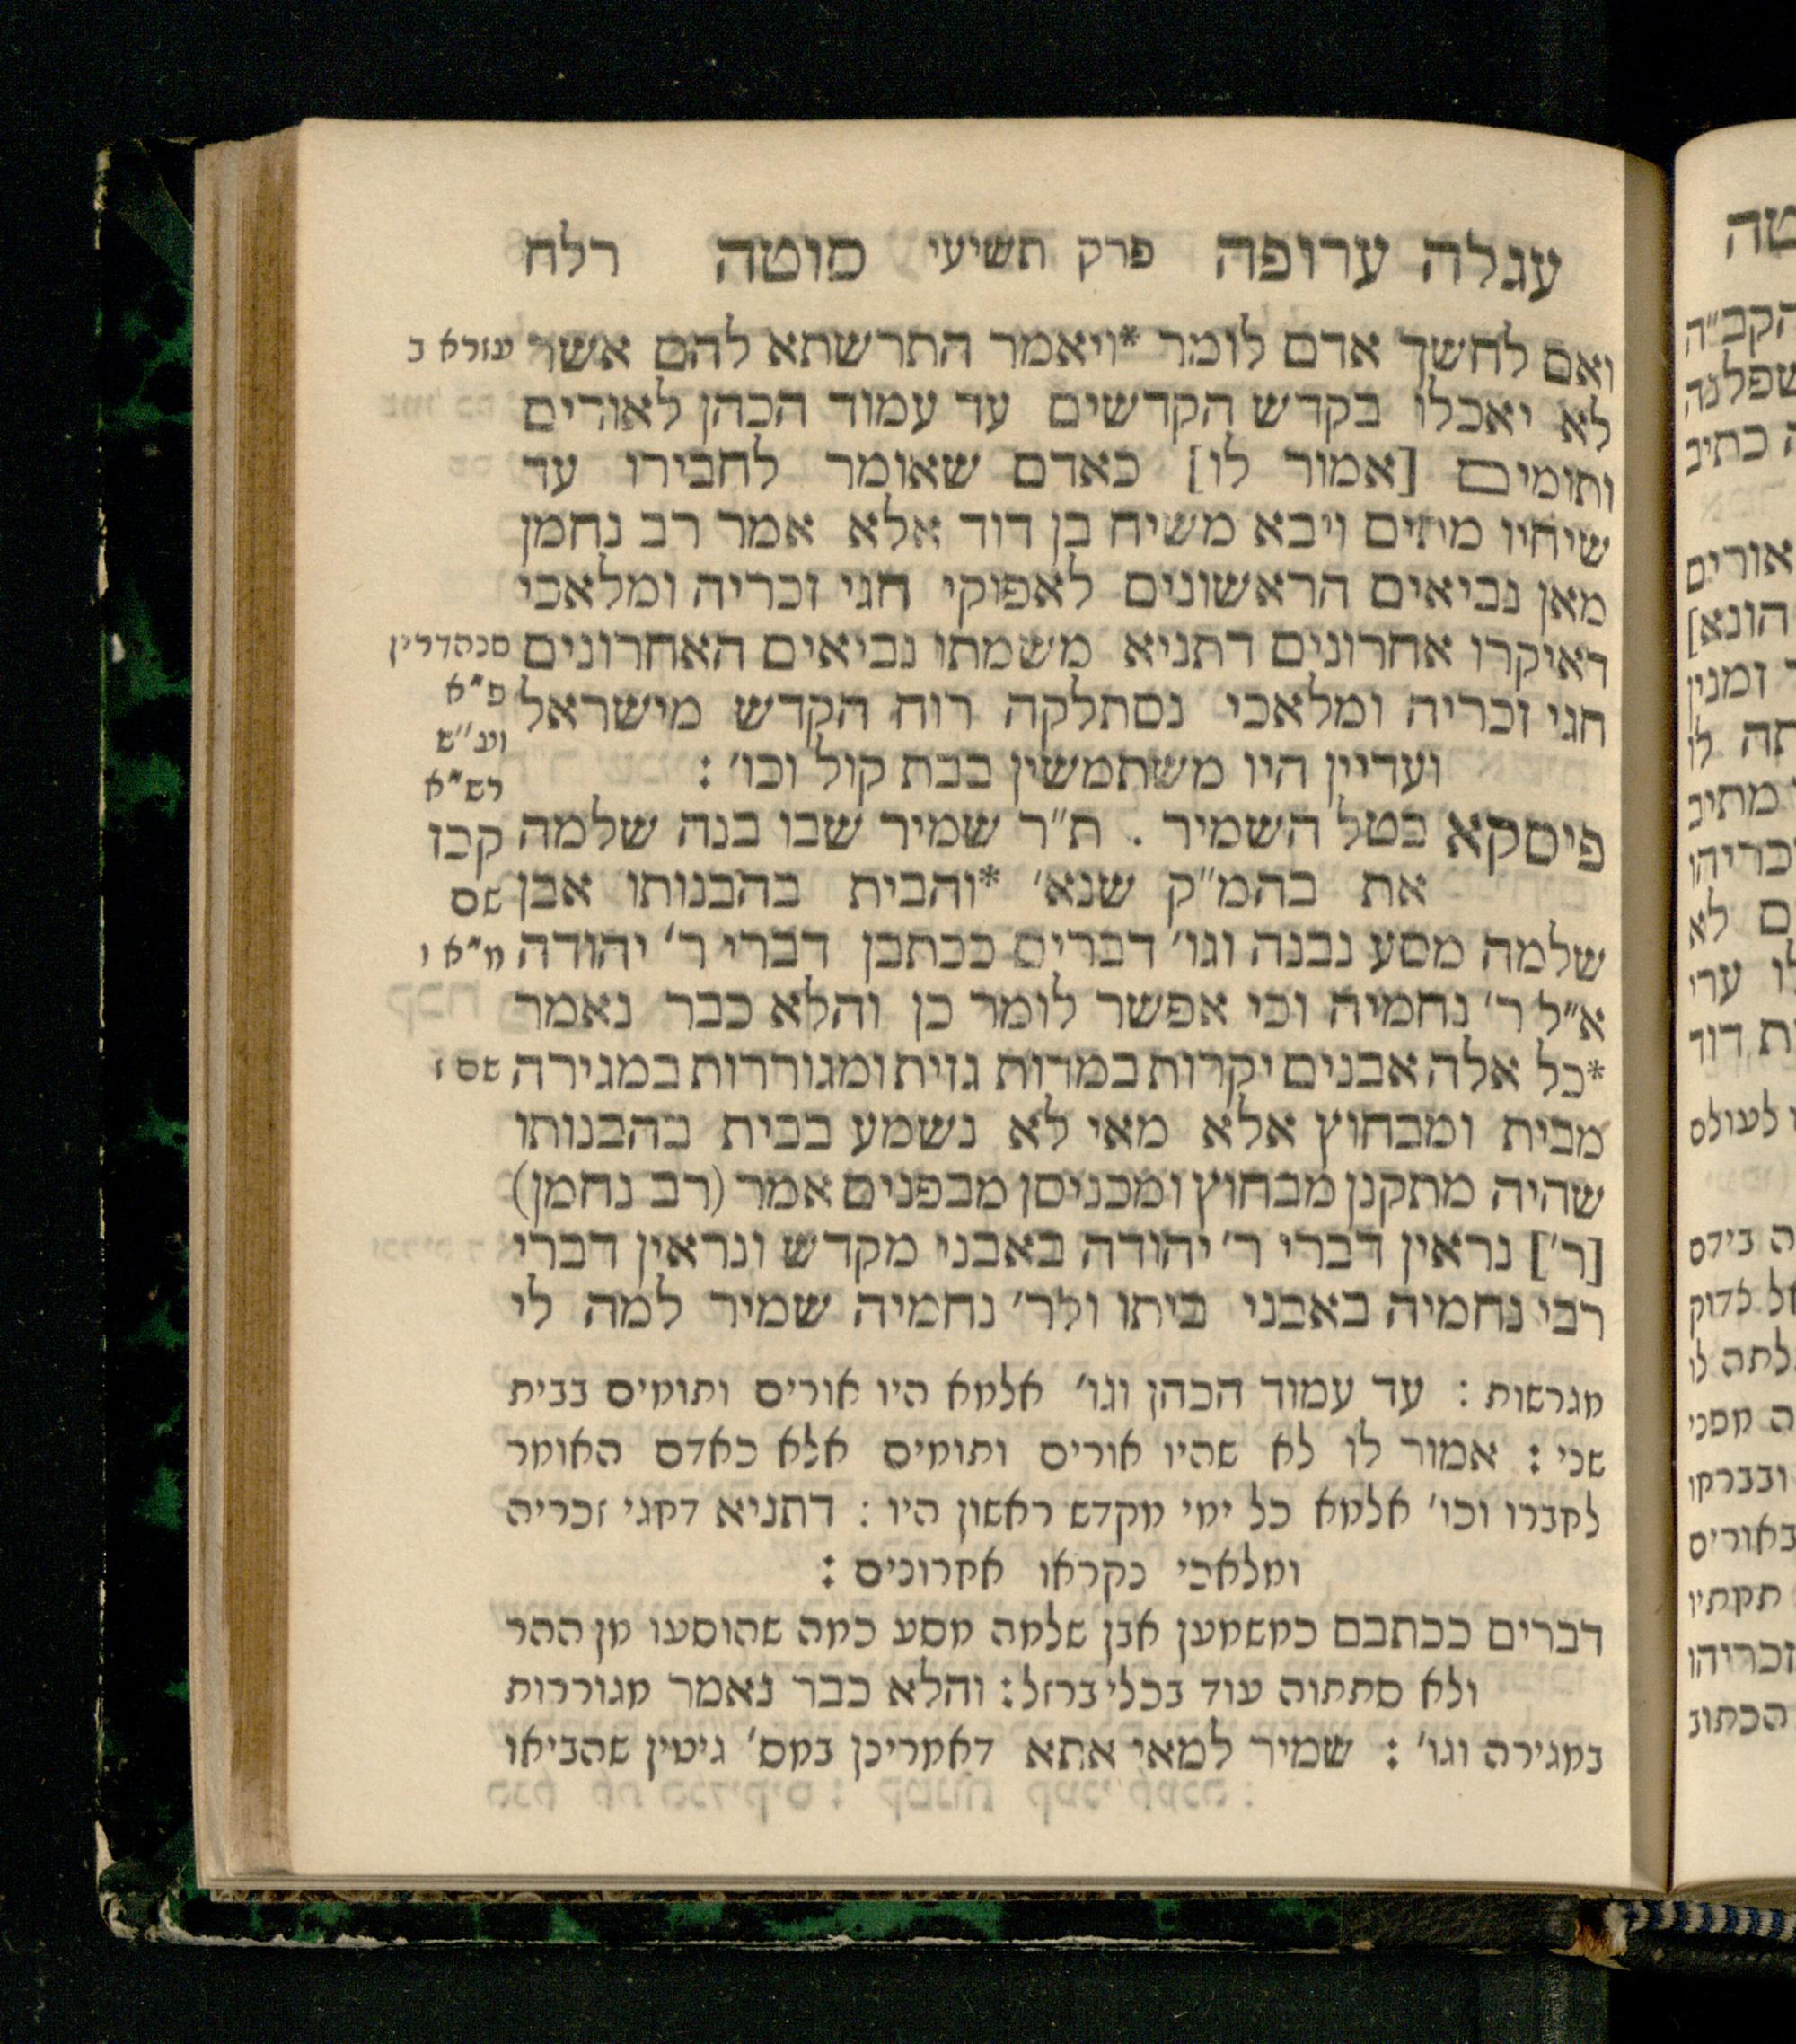 עגלה ערופה פרק תשיעי סוטה רלח
ואם לחשך אדם לומר *ויאמר התרשתא להם אשר
לא יאכלו בקדש הקדשים עד עמוד הכהן לאורים
ותומים [אמור לו] כאדם שאומר לחבירו עד
שיחיו מתים ויבא משיח בן דוד אלא אמר רב נחמן
מאן נביאים הראשונים לאפוקי חגי זכריה ומלאכי
דאיקרו אחרונים דתניא משמתו נביאים האחרונים
חגי זכריה ומלאכי נסתלקה רוח הקדש מישראל
ועדיין היו משתמשין בבת קול וכו׳ :
פיסקא בטל השמיר . ת״ר שמיר שבו בנה שלמה
את בהמ״ק שנא׳ *והבית בהבנותו אבן
שלמה מסע נבנה וגו׳ דברים ככתבן דברי ר׳ יהודה
א״ל ר׳ נחמיה וכי אפשר לומר כן והלא כבר נאמר
*כל אלה אבנים יקרות במדות גזית ומגוררות במגירה
מבית ומבחוץ אלא מאי לא נשמע בבית בהבנותו
שהיה מתקנן מבחוץ ומכניסן מבפנים אמר (רב נחמן)
[ר׳] נראין דברי ר׳ יהודה באבני מקדש ונראין דברי
רבי נחמיה באבני ביתו ולר׳ נחמיה שמיר למה לי
עזרא ב
סנהדרין
פ״א
וע״ש
רש״א
קבז
שם
מ״א ו
שם ז
מגרשות : עד עמוד הכהן וגו׳ אלמא היו אורים ותומים בבית
שני : אמור לו לא שהיו אורים ותומים אלא כאדם האומר
לחברו וכו׳ אלמא כל ימי מקדש ראשון היו : דתניא דחגי זכריה
ומלאכי נקראו אחרונים :
דברים ככתבם כמשמען אבן שלמה מסע כמה שהוסעו מן ההר
ולא סתתוה עוד בכלי ברזל : והלא כבר נאמר מגוררות
במגירה וגו׳ : שמיר למאי אתא דאמרינן במס׳ גיטין שהביאו
טה
הקב״ה
שפלגה
כתיב
אורים
הונא]
זמנין
לו
מתיב
ם לא
ערי
ת דוד
לעולם
ה בידם
לדוק
לתה לו
ה מפני
ובברקו
באורים
זכריהו
הכתוב